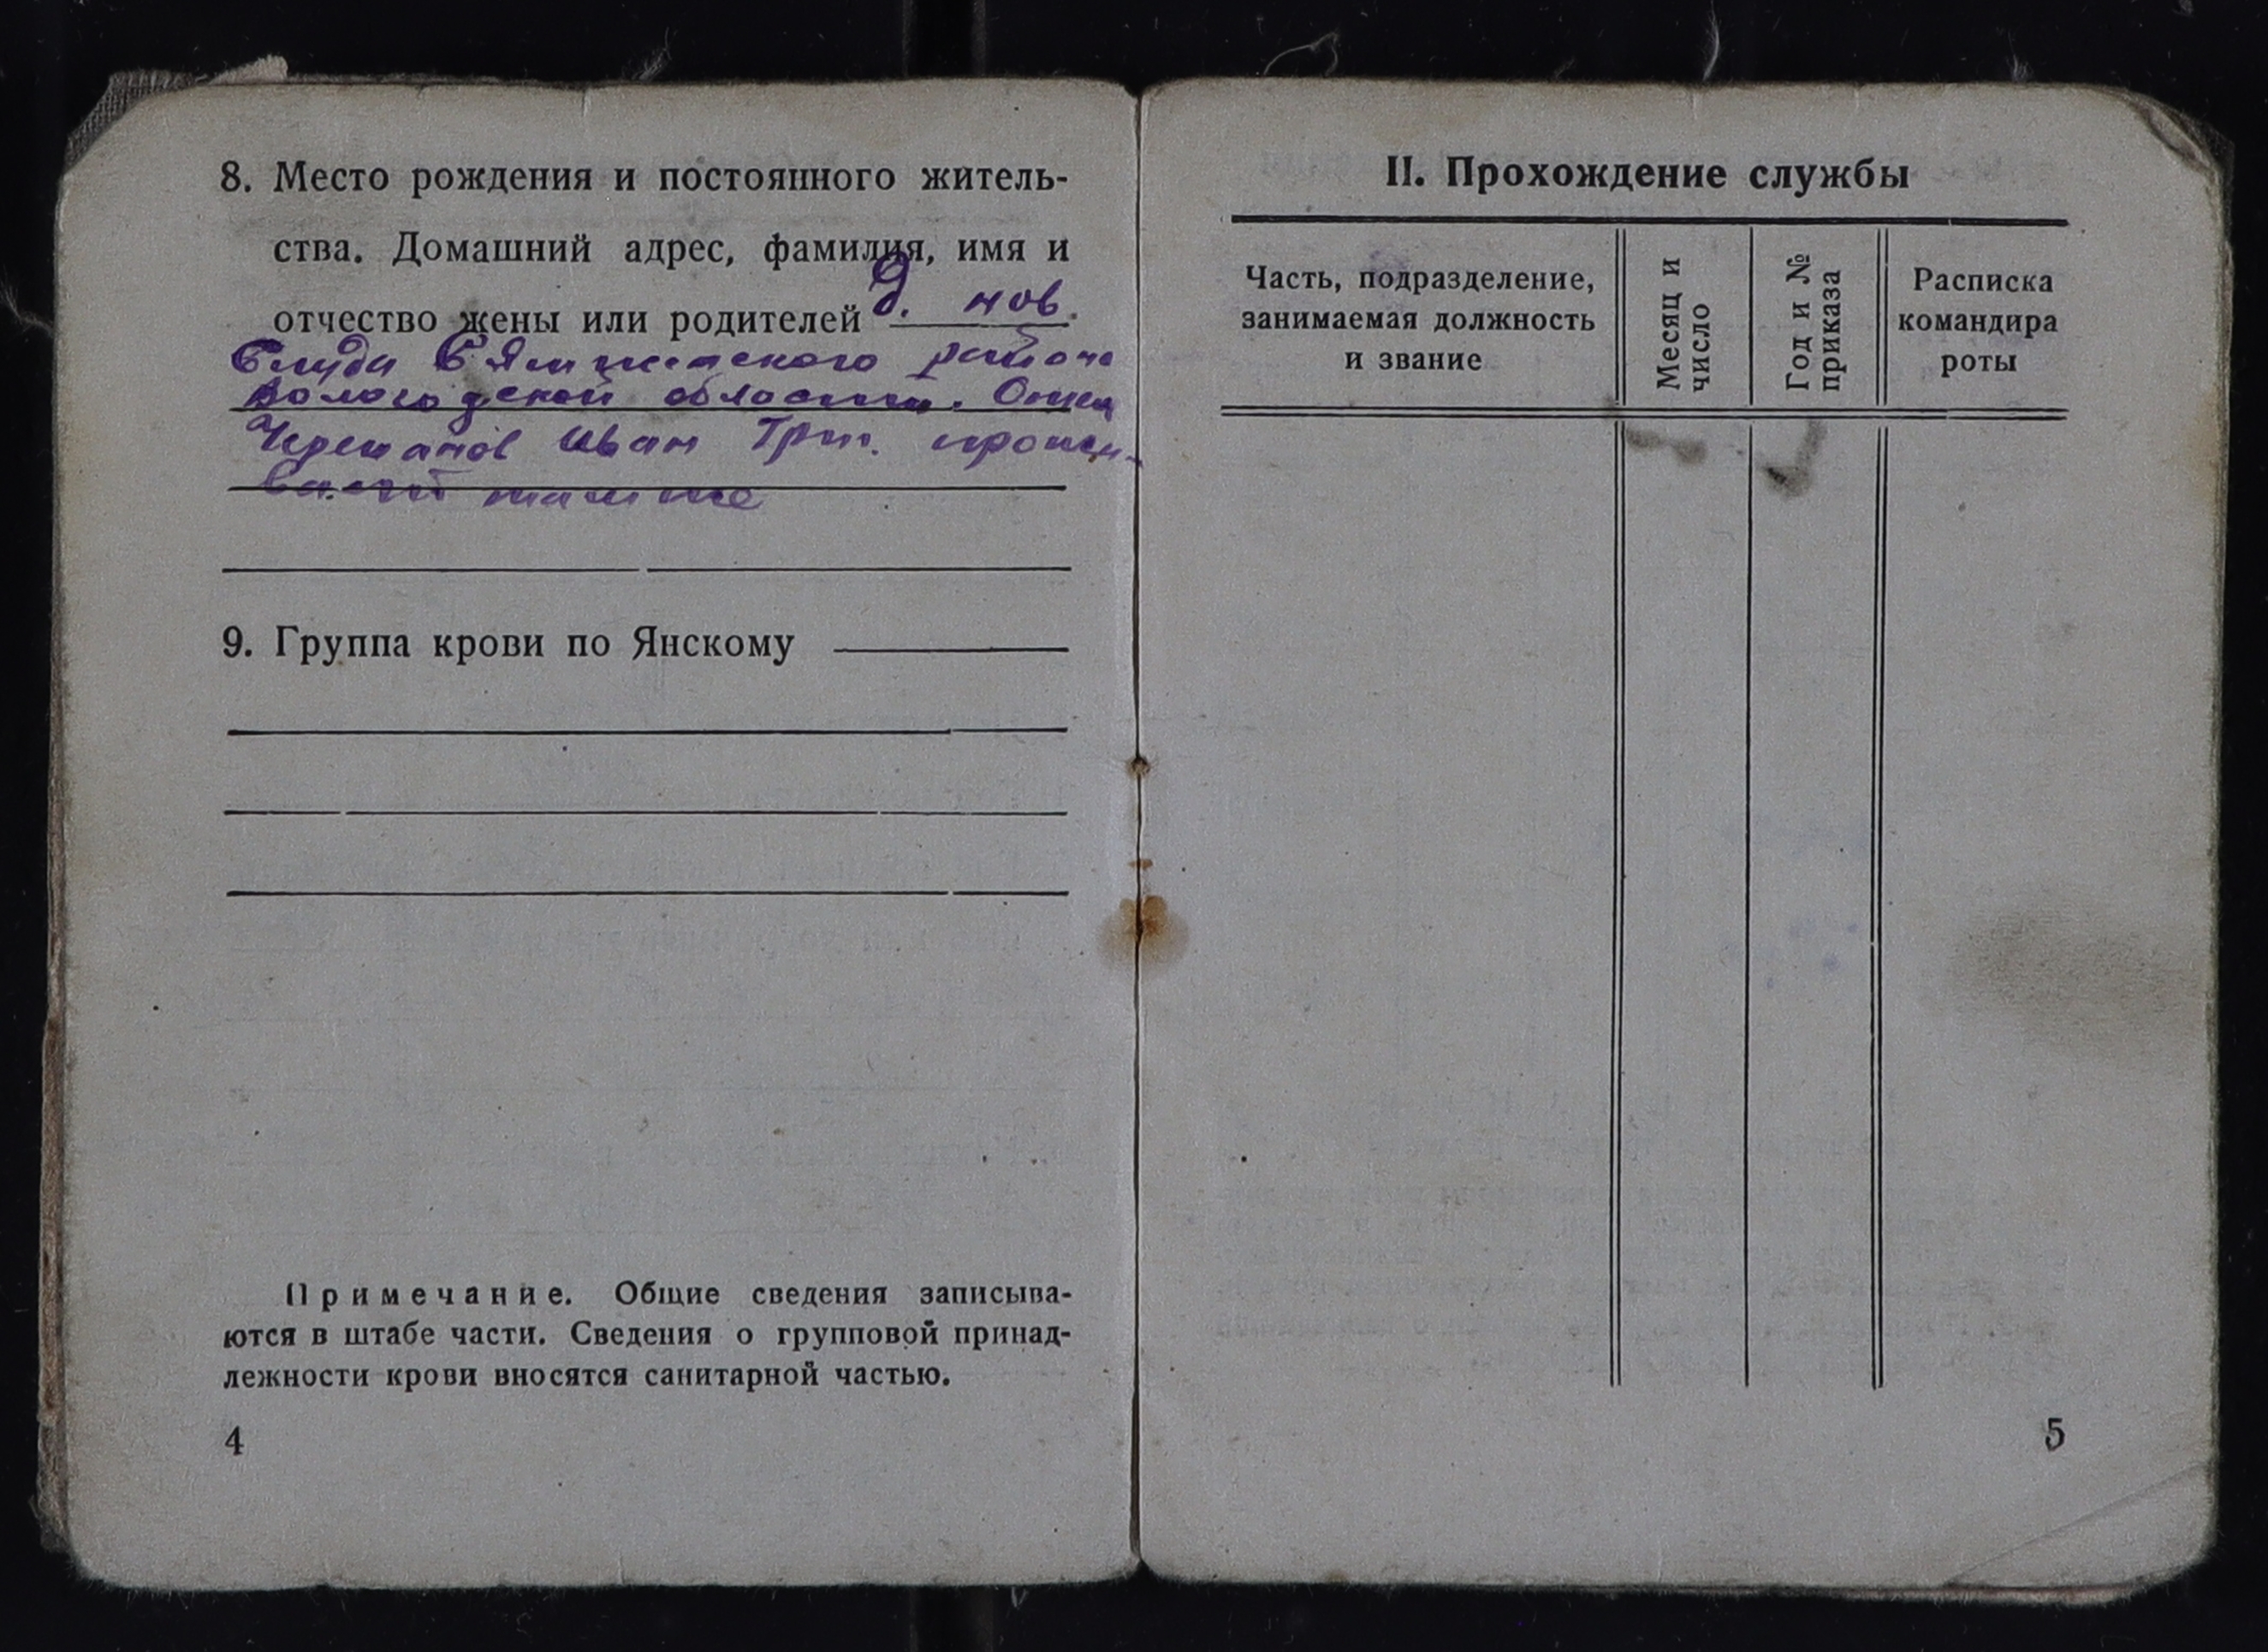 8. Место рождения и постоянного житель-
ства. Домашний адрес, фамилия, имя и
отчество жены или родителей д. нов.
района
Вологодской области. Отец
Черепанов Иван Григ. прожи-
вает там же
9. Группа крови по Янскому
Примечание. Общие сведения записыва-
ются в штабе части. Сведения о групповой принад-
лежности крови вносятся санитарной частью.
4
II. Прохождение службы
Часть, подразделение,
занимаемая должность
и звание
Месяц и
число
Год и №
приказа
Расписка
командира
роты
5